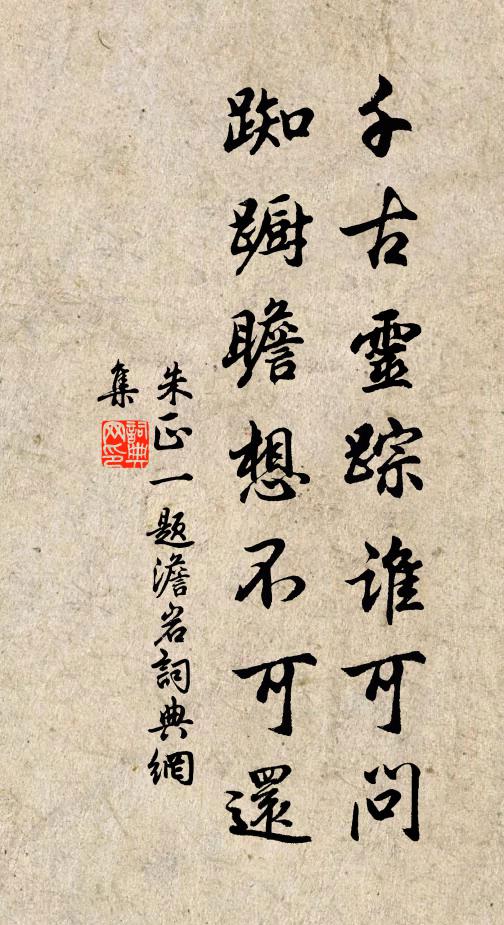 千古靈踪誰可問
踟躕瞻想不可還
朱正一題澹岩詞典網
集
詞典
网印